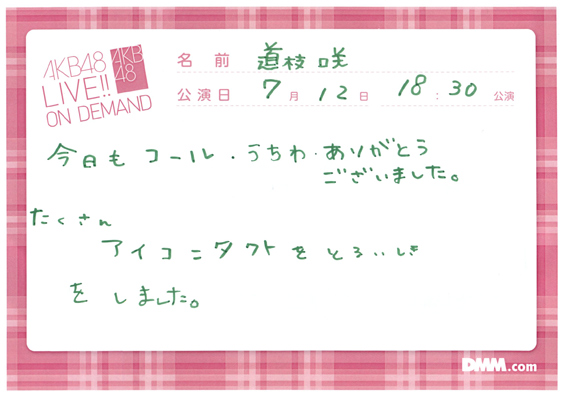 AKB48
LIVE!!
ON DEMAND
AKB
48
名前 道枝咲
公演日 7月12日 18:30 公演
今日もコール・うちわ・ありがとう
ございました。
たくさん
アイコニタクトをとろいしき
をしました。
DMM.com